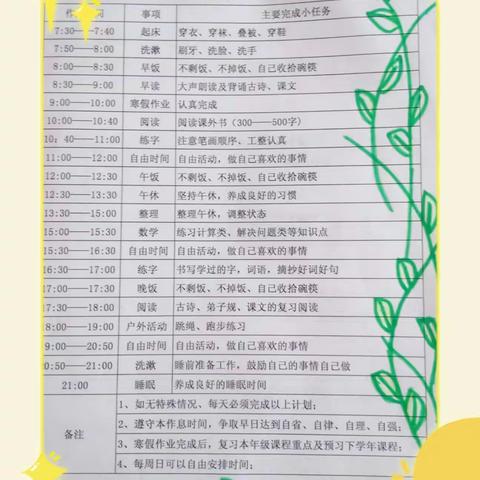 作 间 事项 主要完成小任务
7:30——7:40 起床 穿衣、穿袜、叠被、穿鞋
7:50——8:00 洗漱 刷牙、洗脸、洗手
8:00——8:30 早饭 不剩饭、不掉饭、自己收拾碗筷
8:30——9:00 早读 大声朗读及背诵古诗、课文
9:00——10:00 寒假作业 认真完成
10:00——10:40 阅读 阅读课外书（300——500字）
10：40——11:00 练字 注意笔画顺序、工整认真
11:00——12:00 自由时间 自由活动，做自己喜欢的事情
12:00——12:30 午饭 不剩饭、不掉饭、自己收拾碗筷
12:30——13:30 午休 坚持午休，养成良好的习惯
13:30——15:00 整理 整理午休，调整状态
15:00——15:30 数学 练习计算类、解决问题类等知识点
15:30——16:30 自由时间 自由活动，做自己喜欢的事情
16:30——17:00 练字 书写学过的字，词语，摘抄好词好句
17:00——17:30 晚饭 不剩饭、不掉饭、自己收拾碗筷
17:30——18:00 阅读 古诗、弟子规、课文的复习阅读
18:00——19:00 户外活动 跳绳、跑步练习
9:00——20:50 自由时间 自由活动，做自己喜欢的事情
20:50——21:00 洗漱 睡前准备工作，鼓励自己的事情自己做
21:00 睡眠 养成良好的睡眠时间
备注
1、如无特殊情况、每天必须完成以上计划；
2、遵守本作息时间，争取早日达到自省、自律、自理、自强；
3、寒假作业完成后，复习本年级课程重点及预习下学年课程；
4、每周日可以自由安排时间；